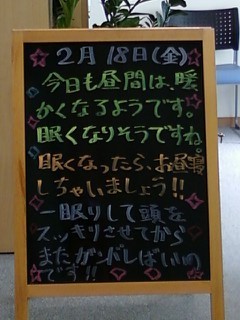 2月18日(金)
今日も昼間は、暖
かくなるようです。
眠くなりそうですね。
眠くなったら、お昼寝
しちゃいましょう!!
一眠りして頭を
スッキリさせてから
またガンバレばいいの
です!!